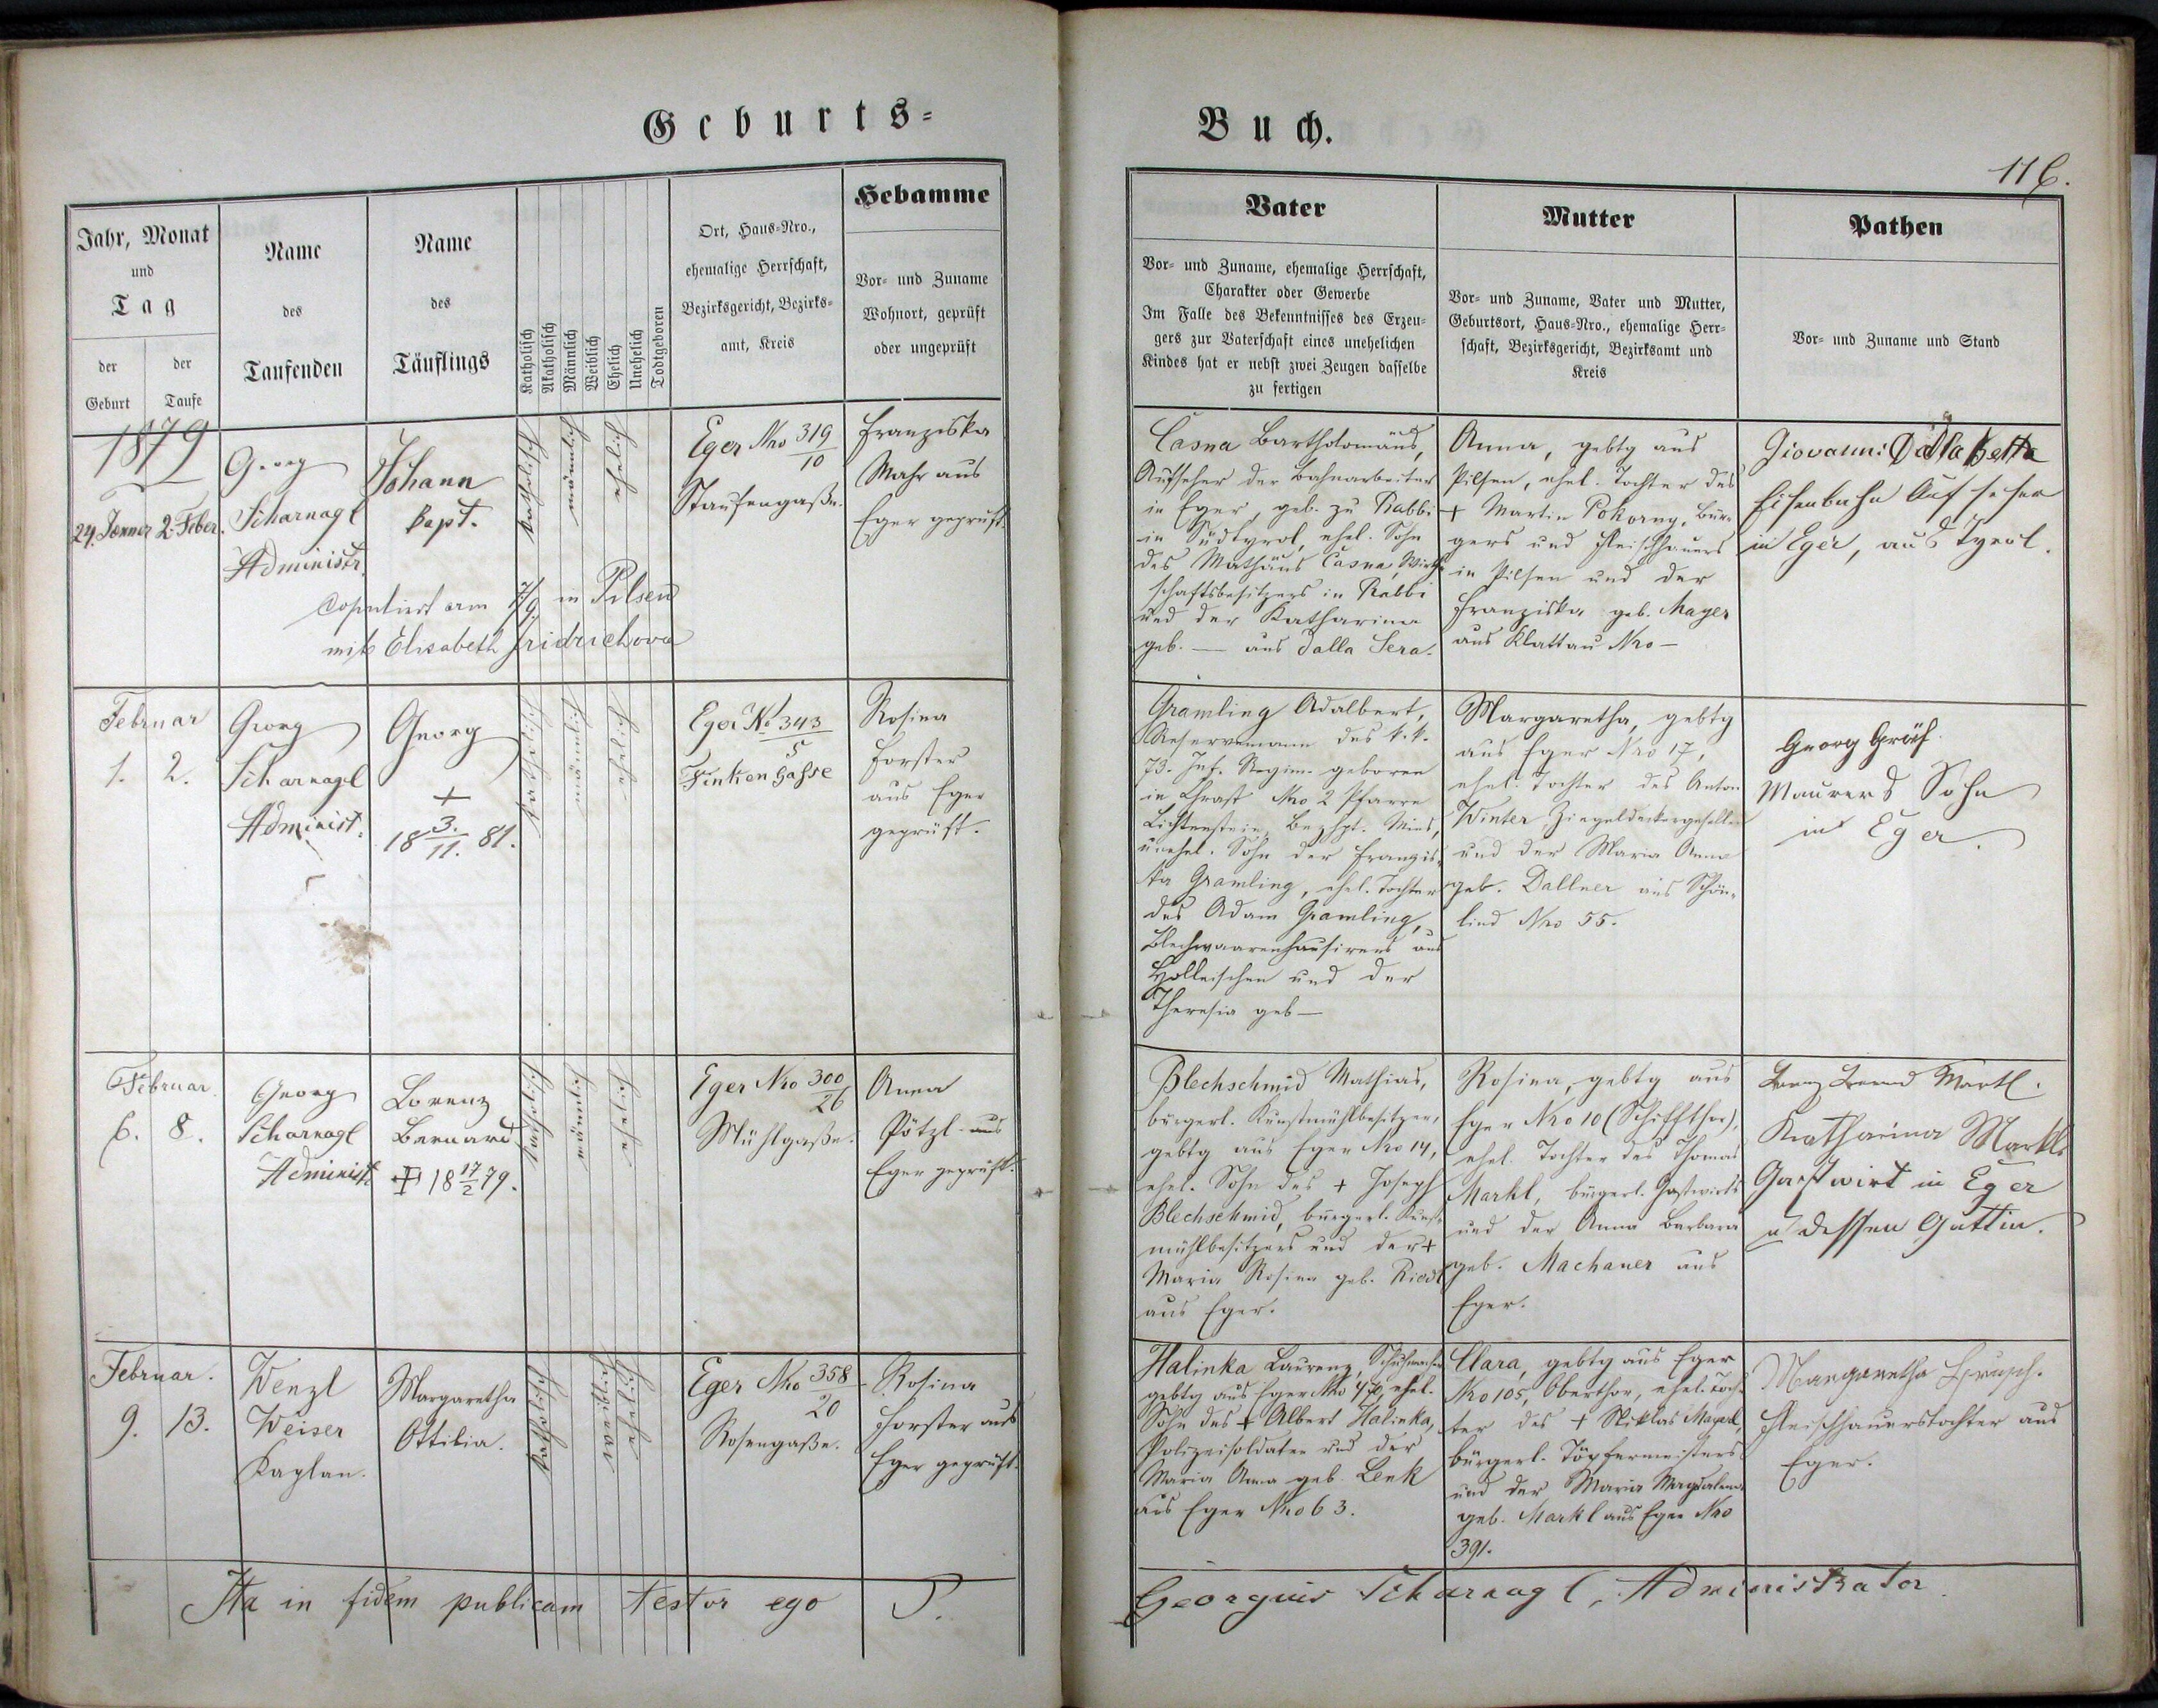 Geburts-
Buch.
116.
Jahr, Monat
und
Tag
der
Geburt
der
Taufe
Name
des
Taufenden
Name
des
Täuflings
Katholisch
Akatholisch
Männlich
Weiblich
Ehelich
Unehelich
Todtgeboren
Ort, Haus-Nro.,
ehemalige Herrschaft,
Bezirksgericht, Bezirks-
amt, Kreis
Hebamme
Vor- und Zuname
Wohnort, geprüft
oder ungeprüft
Vater
Vor- und Zuname, ehemalige Herrschaft,
Charakter oder Gewerbe
Im Falle des Bekenntnisses des Erzeu-
gers zur Vaterschaft eines unehelichen
Kindes hat er nebst zwei Zeugen dasselbe
zu fertigen
Mutter
Vor- und Zuname, Vater und Mutter,
Geburtsort, Haus-Nro., ehemalige Herr-
schaft, Bezirksgericht, Bezirksamt und
Kreis
Pathen
Vor- und Zuname und Stand
1879
24. Jänner 2. Feber.
Georg
Scharnagl
Administr.
Johann
Bapt.
katholisch
männlich
ehelich
Eger Nro 319/10
Staufengaße.
Franziska
Mahr aus
Eger geprüft.
Copuliert am in Pilsen
mit Elisabeth Jridrichova
Casna Bartholomäus,
Aufseher der Bahnarbeiter
in Eger, geb. zu Rabbi
in Südtyrol, ehel. Sohn
des Mathäus Casna, Wirth-
schaftsbesitzers in Rabbi
und der Katharina
geb. — aus Dalla Sera.
Anna, gebtg aus
Pilsen, ehel. Tochter des
+ Martin Pokorny, Bür-
gers und Fleischhauers
in Pilsen und der
Franziska geb. Mayer
aus Klattau Nro —
Giovanni Dalla Betta
Eisenbahn Aufseher
in Eger, aus Tyrol.
Februar
1. 2.
Georg
Scharnagl
Administ.
Georg
+
18 3./11. 81.
katholisch
männlich
ehelich
Eger No 343/5
Finken Gasse
Rosina
Forster
aus Eger
geprüft.
Gramling Adalbert,
Reservemann des k. k.
73. Inf. Regim. geboren
in Chrast Nro 2 Pfarre
Lichtenstein, Bezhpt. Mies,
unehel. Sohn der Franzis-
ka Gramling, ehel. Tochter
des Adam Gramling,
Blechwaarenhausirers aus
Holleischen und der
Theresia geb —
Margaretha, gebtg
aus Eger Nro 17,
ehel. Tochter des Anton
Winter, Ziegeldeckergesellen
und der Maria Anna
geb. Dallner aus Schön-
lind Nro 55.
Georg Gräf
Maurers Sohn
in Eger.
Februar
6. 8.
Georg
Scharnagl
Administ.
Lorenz
Bernard
+ 18 17/2 79.
katholisch
männlich
ehelich
Eger Nro 300/26
Mühlgaße.
Anna
Pötzl aus
Eger geprüft.
Blechschmid Mathias,
bürgerl. Kunstmühlbesitzer,
gebtg aus Eger Nro 14,
ehel. Sohn des + Joseph
Blechschmid, bürgerl. Kunst-
mühlbesitzers und der +
Maria Rosina geb. Riedl
aus Eger.
Rosina, gebtg aus
Eger Nro 10 (Schiffthor),
ehel. Tochter des Thomas
Markl, bürgerl. Gastwirts
und der Anna Barbara
geb. Machaner aus
Eger.
Markl.
Katharina Markl
Gastwirt in Eger
u. dessen Gattin.
Februar.
9. 13.
Wenzl
Weiser
Kaplan.
Margaretha
Ottilia.
katholisch
weiblich
ehelich
Eger Nro 358/20
Rosengaße.
Rosina
Forster aus
Eger geprüft.
Halinka Laurenz, Schuhmacher
gebtg aus Eger Nro 470, ehel.
Sohn des + Albert Halinka,
Polizeisoldaten und der
Maria Anna geb. Lenk
aus Eger Nro 63.
Clara, gebtg aus Eger
Nro 105, Oberthor, ehel. Toch-
ter des + Niklas Mayerl,
bürgerl. Töpfermeisters
und der Maria Magdalena
geb. Markl aus Eger Nro
391.
Margaretha
Fleischhauerstochter aus
Eger.
Ita in fidem publicam testor ego P.
Georgius Scharnagl, Administrator.